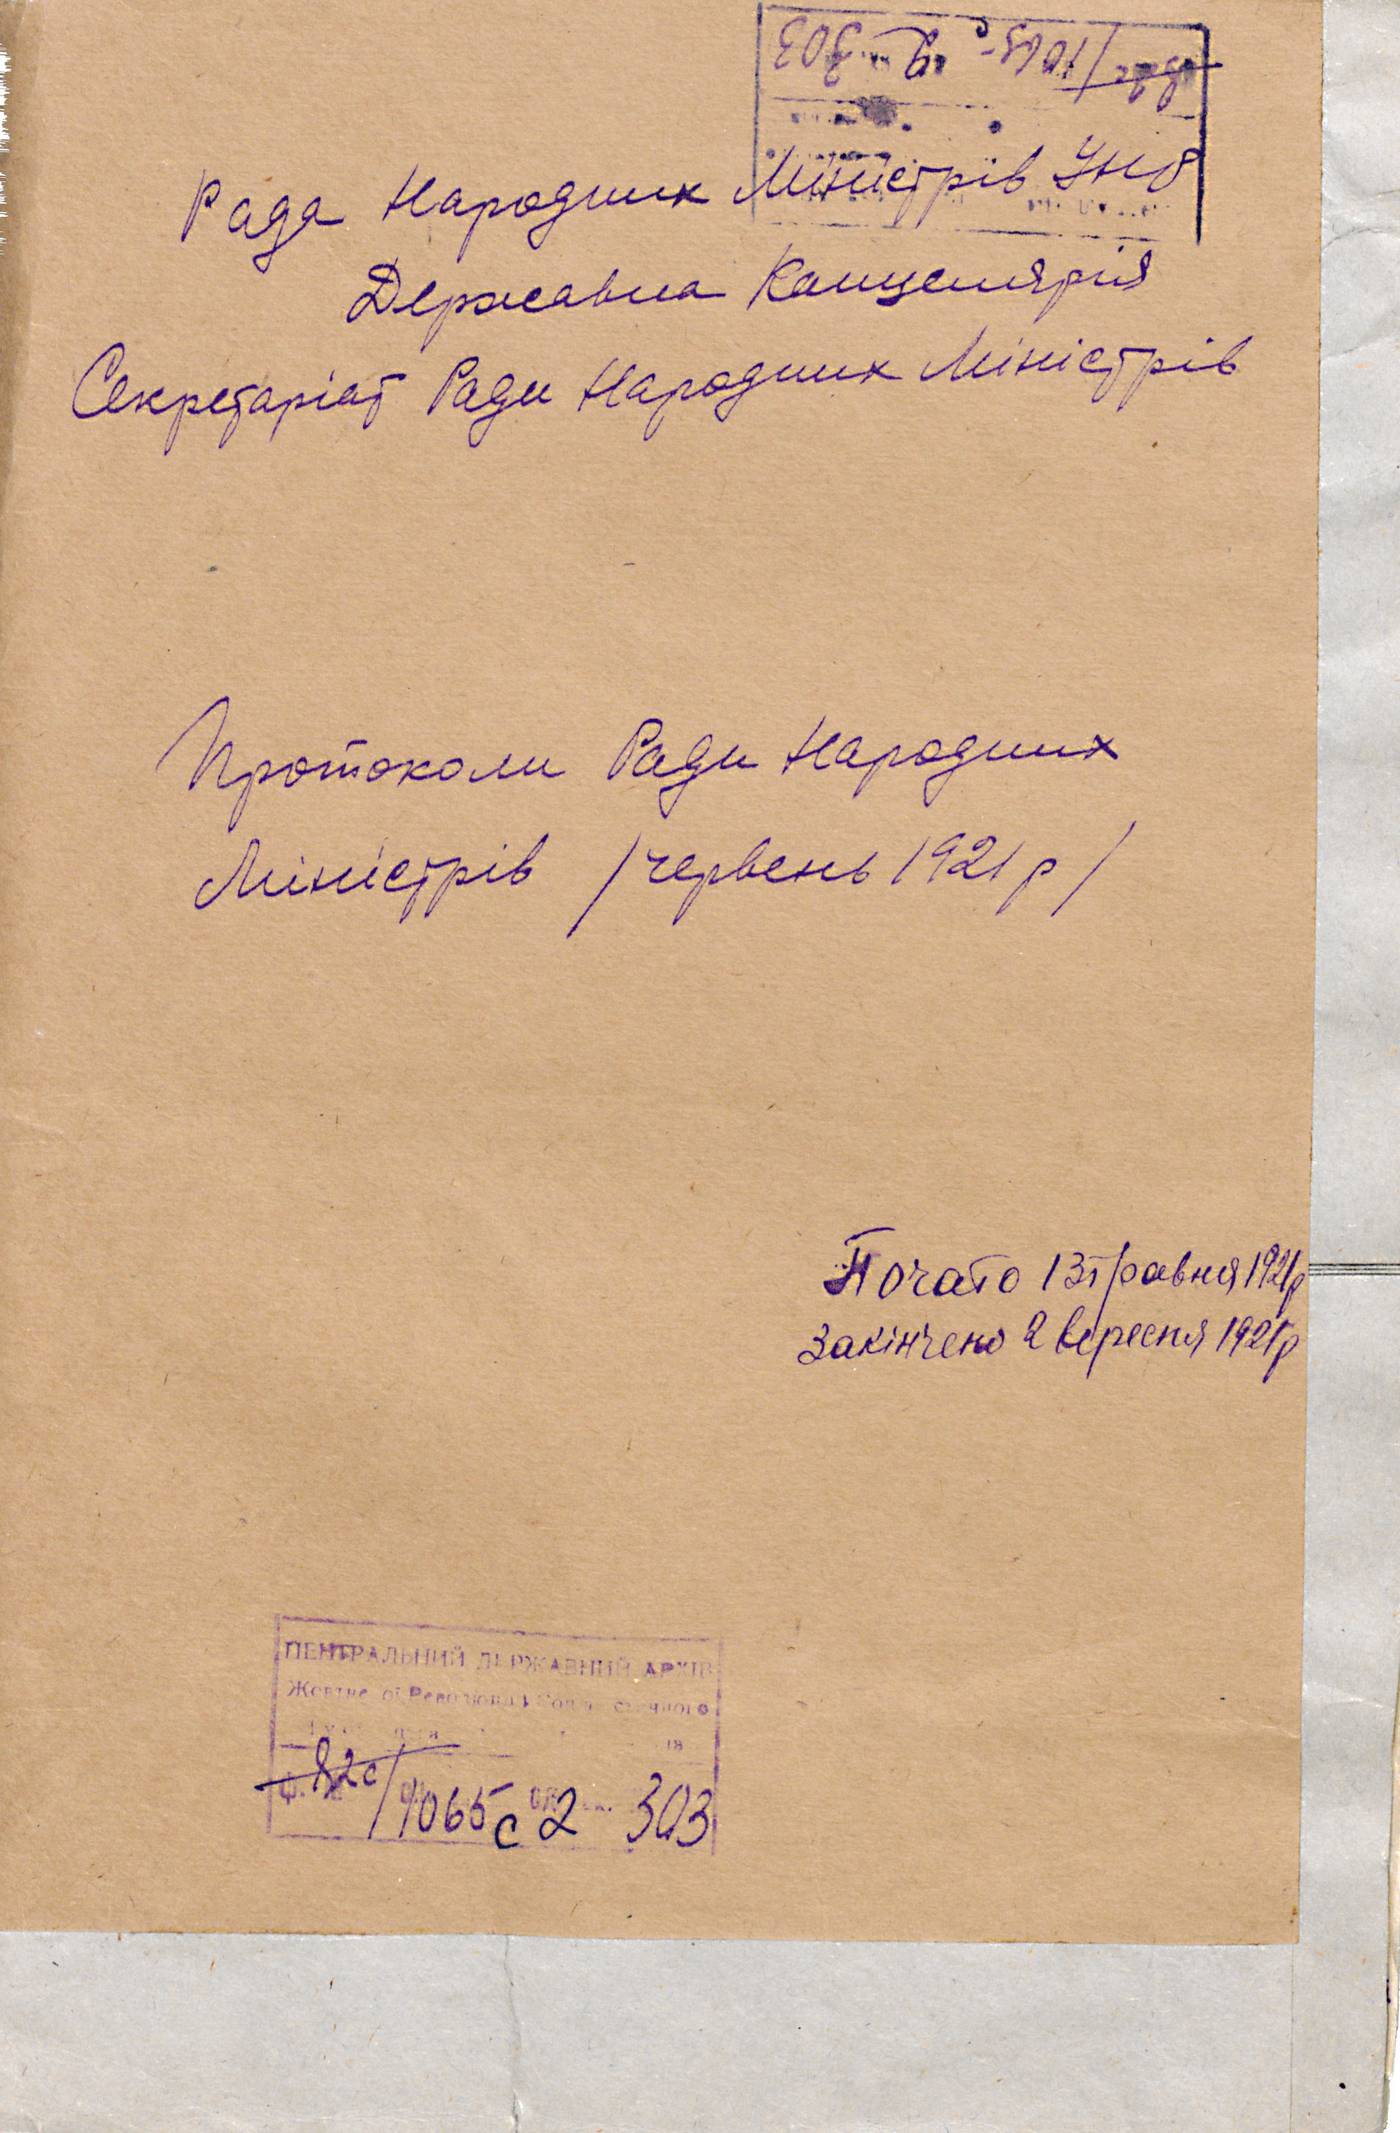 82с/1065с 2 303
Рада Народних Міністрів УНР
Державна Канцелярія
Секретаріат Ради Народних Міністрів
Протоколи Ради Народних
Міністрів /червень 1921 р/
Почато 13 травня 1921 р
Закінчено 2 вересня 1921 р
ЦЕНТРАЛЬНИЙ ДЕРЖАВНИЙ АРХІВ
82с/1065с 2 303